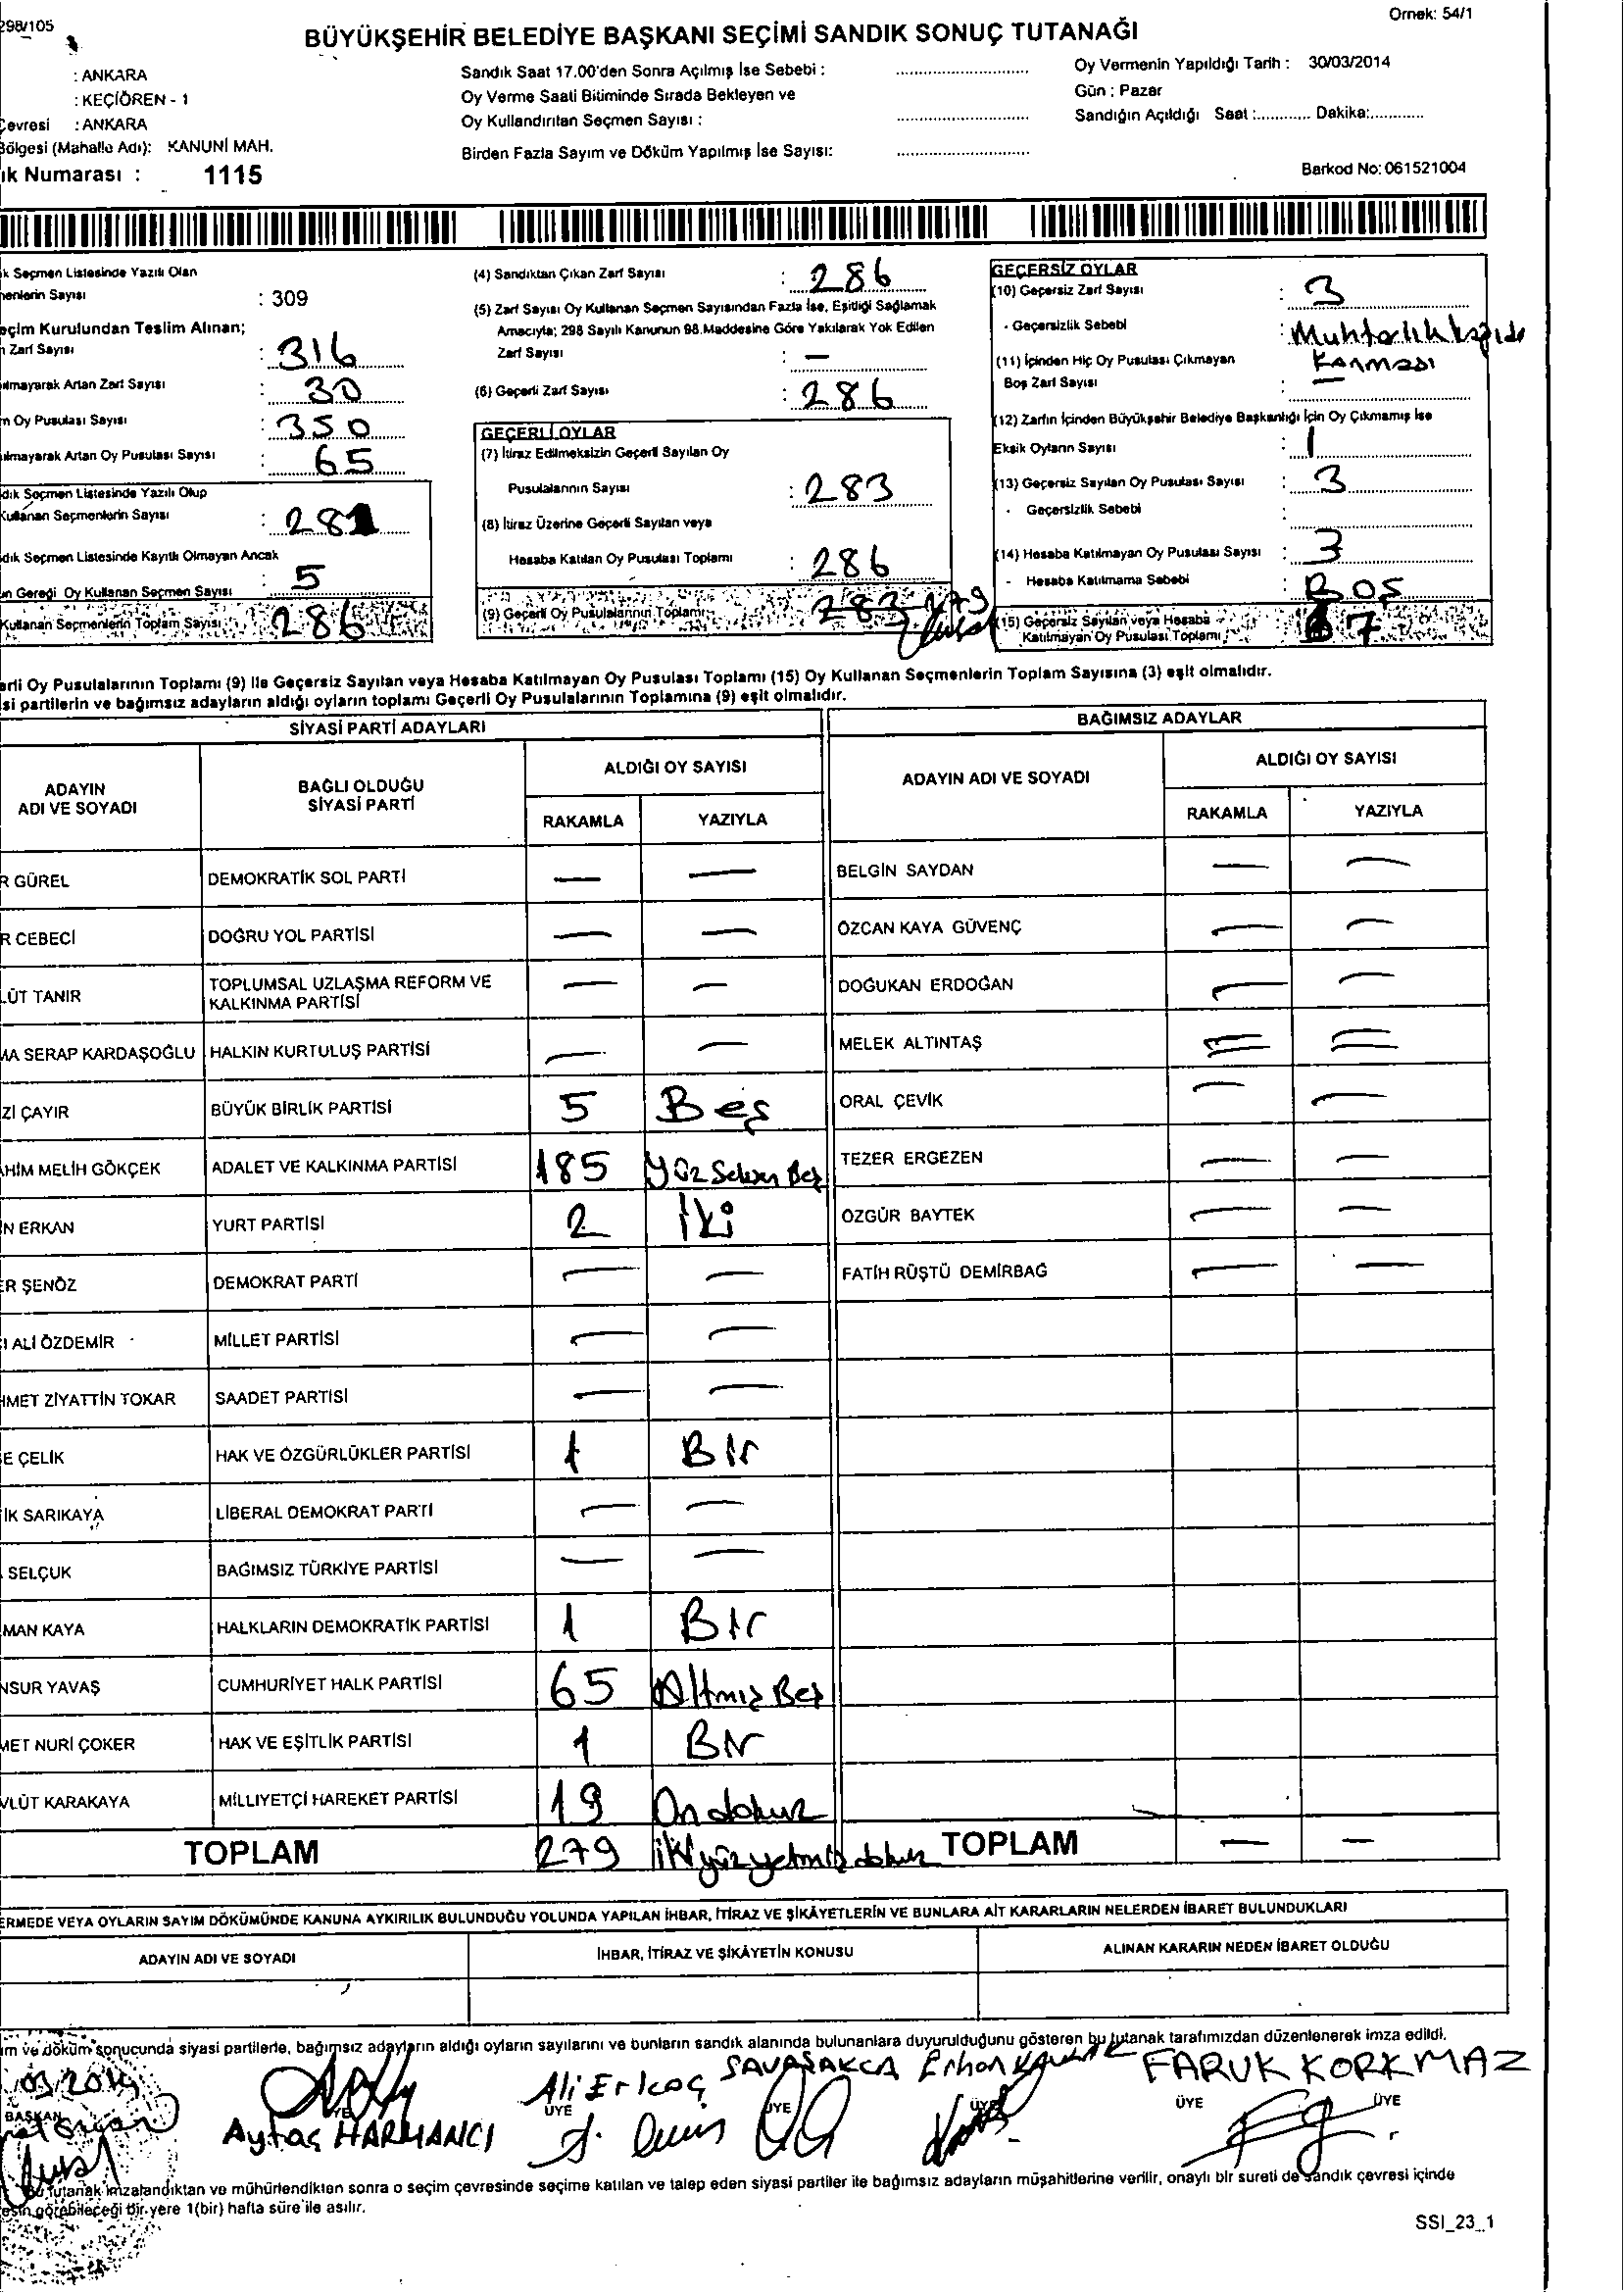 298/105
Örnek: 54/1
BÜYÜKŞEHİR BELEDİYE BAŞKANI SEÇİMİ SANDIK SONUÇ TUTANAĞI
: ANKARA
: KEÇİÖREN - 1
Çevresi : ANKARA
Bölgesi (Mahalle Adı): KANUNİ MAH.
ık Numarası : 1115
Sandık Saat 17.00'den Sonra Açılmış İse Sebebi :
Oy Verme Saati Bitiminde Sırada Bekleyen ve
Oy Kullandırılan Seçmen Sayısı :
Birden Fazla Sayım ve Döküm Yapılmış İse Sayısı:
Oy Vermenin Yapıldığı Tarih : 30/03/2014
Gün : Pazar
Sandığın Açıldığı Saat :............ Dakika:............
Barkod No: 061521004
k Seçmen Listesinde Yazılı Olan
menlerin Sayısı : 309
eçim Kurulundan Teslim Alınan;
n Zarf Sayısı : 316
ılmayarak Artan Zarf Sayısı : 30
m Oy Pusulası Sayısı : 350
ılmayarak Artan Oy Pusulası Sayısı : 65
dık Seçmen Listesinde Yazılı Olup
Kullanan Seçmenlerin Sayısı : 281
dık Seçmen Listesinde Kayıtlı Olmayan Ancak
n Gereği Oy Kullanan Seçmen Sayısı : 5
Kullanan Seçmenlerin Toplam Sayısı : 286
(4) Sandıktan Çıkan Zarf Sayısı : 286
(5) Zarf Sayısı Oy Kullanan Seçmen Sayısından Fazla İse, Eşitliği Sağlamak
Amacıyla; 298 Sayılı Kanunun 98.Maddesine Göre Yakılarak Yok Edilen
Zarf Sayısı : —
(6) Geçerli Zarf Sayısı : 286
GEÇERLİ OYLAR
(7) İtiraz Edilmeksizin Geçerli Sayılan Oy
Pusulalarının Sayısı : 283
(8) İtiraz Üzerine Geçerli Sayılan veya
Hesaba Katılan Oy Pusulası Toplamı : 286
(9) Geçerli Oy Pusulalarının Toplamı : 283 279
GEÇERSİZ OYLAR
(10) Geçersiz Zarf Sayısı : 3
- Geçersizlik Sebebi : Muhtarlık
(11) İçinden Hiç Oy Pusulası Çıkmayan
Boş Zarf Sayısı : —
(12) Zarfın İçinden Büyükşehir Belediye Başkanlığı İçin Oy Çıkmamış İse
Eksik Oyların Sayısı : 1
(13) Geçersiz Sayılan Oy Pusulası Sayısı : 3
- Geçersizlik Sebebi :
(14) Hesaba Katılmayan Oy Pusulası Sayısı : 3
- Hesaba Katılmama Sebebi : Boş
(15) Geçersiz Sayılan veya Hesaba
Katılmayan Oy Pusulası Toplamı : 7
erli Oy Pusulalarının Toplamı (9) ile Geçersiz Sayılan veya Hesaba Katılmayan Oy Pusulası Toplamı (15) Oy Kullanan Seçmenlerin Toplam Sayısına (3) eşit olmalıdır.
si partilerin ve bağımsız adayların aldığı oyların toplamı Geçerli Oy Pusulalarının Toplamına (9) eşit olmalıdır.
SİYASİ PARTİ ADAYLARI
BAĞIMSIZ ADAYLAR
ADAYIN ADI VE SOYADI
BAĞLI OLDUĞU SİYASİ PARTİ
ALDIĞI OY SAYISI
RAKAMLA YAZIYLA
ADAYIN ADI VE SOYADI
ALDIĞI OY SAYISI
RAKAMLA YAZIYLA
R GÜREL DEMOKRATİK SOL PARTİ — — BELGİN SAYDAN — —
R CEBECİ DOĞRU YOL PARTİSİ — — ÖZCAN KAYA GÜVENÇ — —
LÜT TANIR TOPLUMSAL UZLAŞMA REFORM VE KALKINMA PARTİSİ — — DOĞUKAN ERDOĞAN — —
MA SERAP KARDAŞOĞLU HALKIN KURTULUŞ PARTİSİ — — MELEK ALTINTAŞ — —
Zİ ÇAYIR BÜYÜK BİRLİK PARTİSİ 5 Beş ORAL ÇEVİK — —
AHİM MELİH GÖKÇEK ADALET VE KALKINMA PARTİSİ 185 Yüz Seksen Beş TEZER ERGEZEN — —
N ERKAN YURT PARTİSİ 2 İki ÖZGÜR BAYTEK — —
ER ŞENÖZ DEMOKRAT PARTİ — — FATİH RÜŞTÜ DEMİRBAĞ — —
İ ALİ ÖZDEMİR MİLLET PARTİSİ — —
HMET ZİYATTİN TOKAR SAADET PARTİSİ — —
E ÇELİK HAK VE ÖZGÜRLÜKLER PARTİSİ 1 Bir
İK SARIKAYA LİBERAL DEMOKRAT PARTİ — —
SELÇUK BAĞIMSIZ TÜRKİYE PARTİSİ — —
MAN KAYA HALKLARIN DEMOKRATİK PARTİSİ 1 Bir
NSUR YAVAŞ CUMHURİYET HALK PARTİSİ 65 Altmış Beş
MET NURİ ÇOKER HAK VE EŞİTLİK PARTİSİ 1 Bir
VLÜT KARAKAYA MİLLİYETÇİ HAREKET PARTİSİ 19 On dokuz
TOPLAM 279 iki yüz yetmiş dokuz TOPLAM — —
ERMEDE VEYA OYLARIN SAYIM DÖKÜMÜNDE KANUNA AYKIRILIK BULUNDUĞU YOLUNDA YAPILAN İHBAR, İTİRAZ VE ŞİKÂYETLERİN VE BUNLARA AİT KARARLARIN NELERDEN İBARET BULUNDUKLARI
ADAYIN ADI VE SOYADI İHBAR, İTİRAZ VE ŞİKÂYETİN KONUSU ALINAN KARARIN NEDEN İBARET OLDUĞU
ım ve döküm sonucunda siyasi partilerle, bağımsız adayların aldığı oyların sayılarını ve bunların sandık alanında bulunanlara duyurulduğunu gösteren bu tutanak tarafımızdan düzenlenerek imza edildi.
03 2014 Ali Erkoç SAVAŞ AKCA Erhan FARUK KORKMAZ
BAŞKAN ÜYE ÜYE ÜYE ÜYE ÜYE
Aytaç HARMANCI
Bu tutanak imzalandıktan ve mühürlendikten sonra o seçim çevresinde seçime katılan ve talep eden siyasi partiler ile bağımsız adayların müşahitlerine verilir, onaylı bir sureti de sandık çevresi içinde
esin görebileceği bir yere 1(bir) hafta süre ile asılır.
SSI_23_1